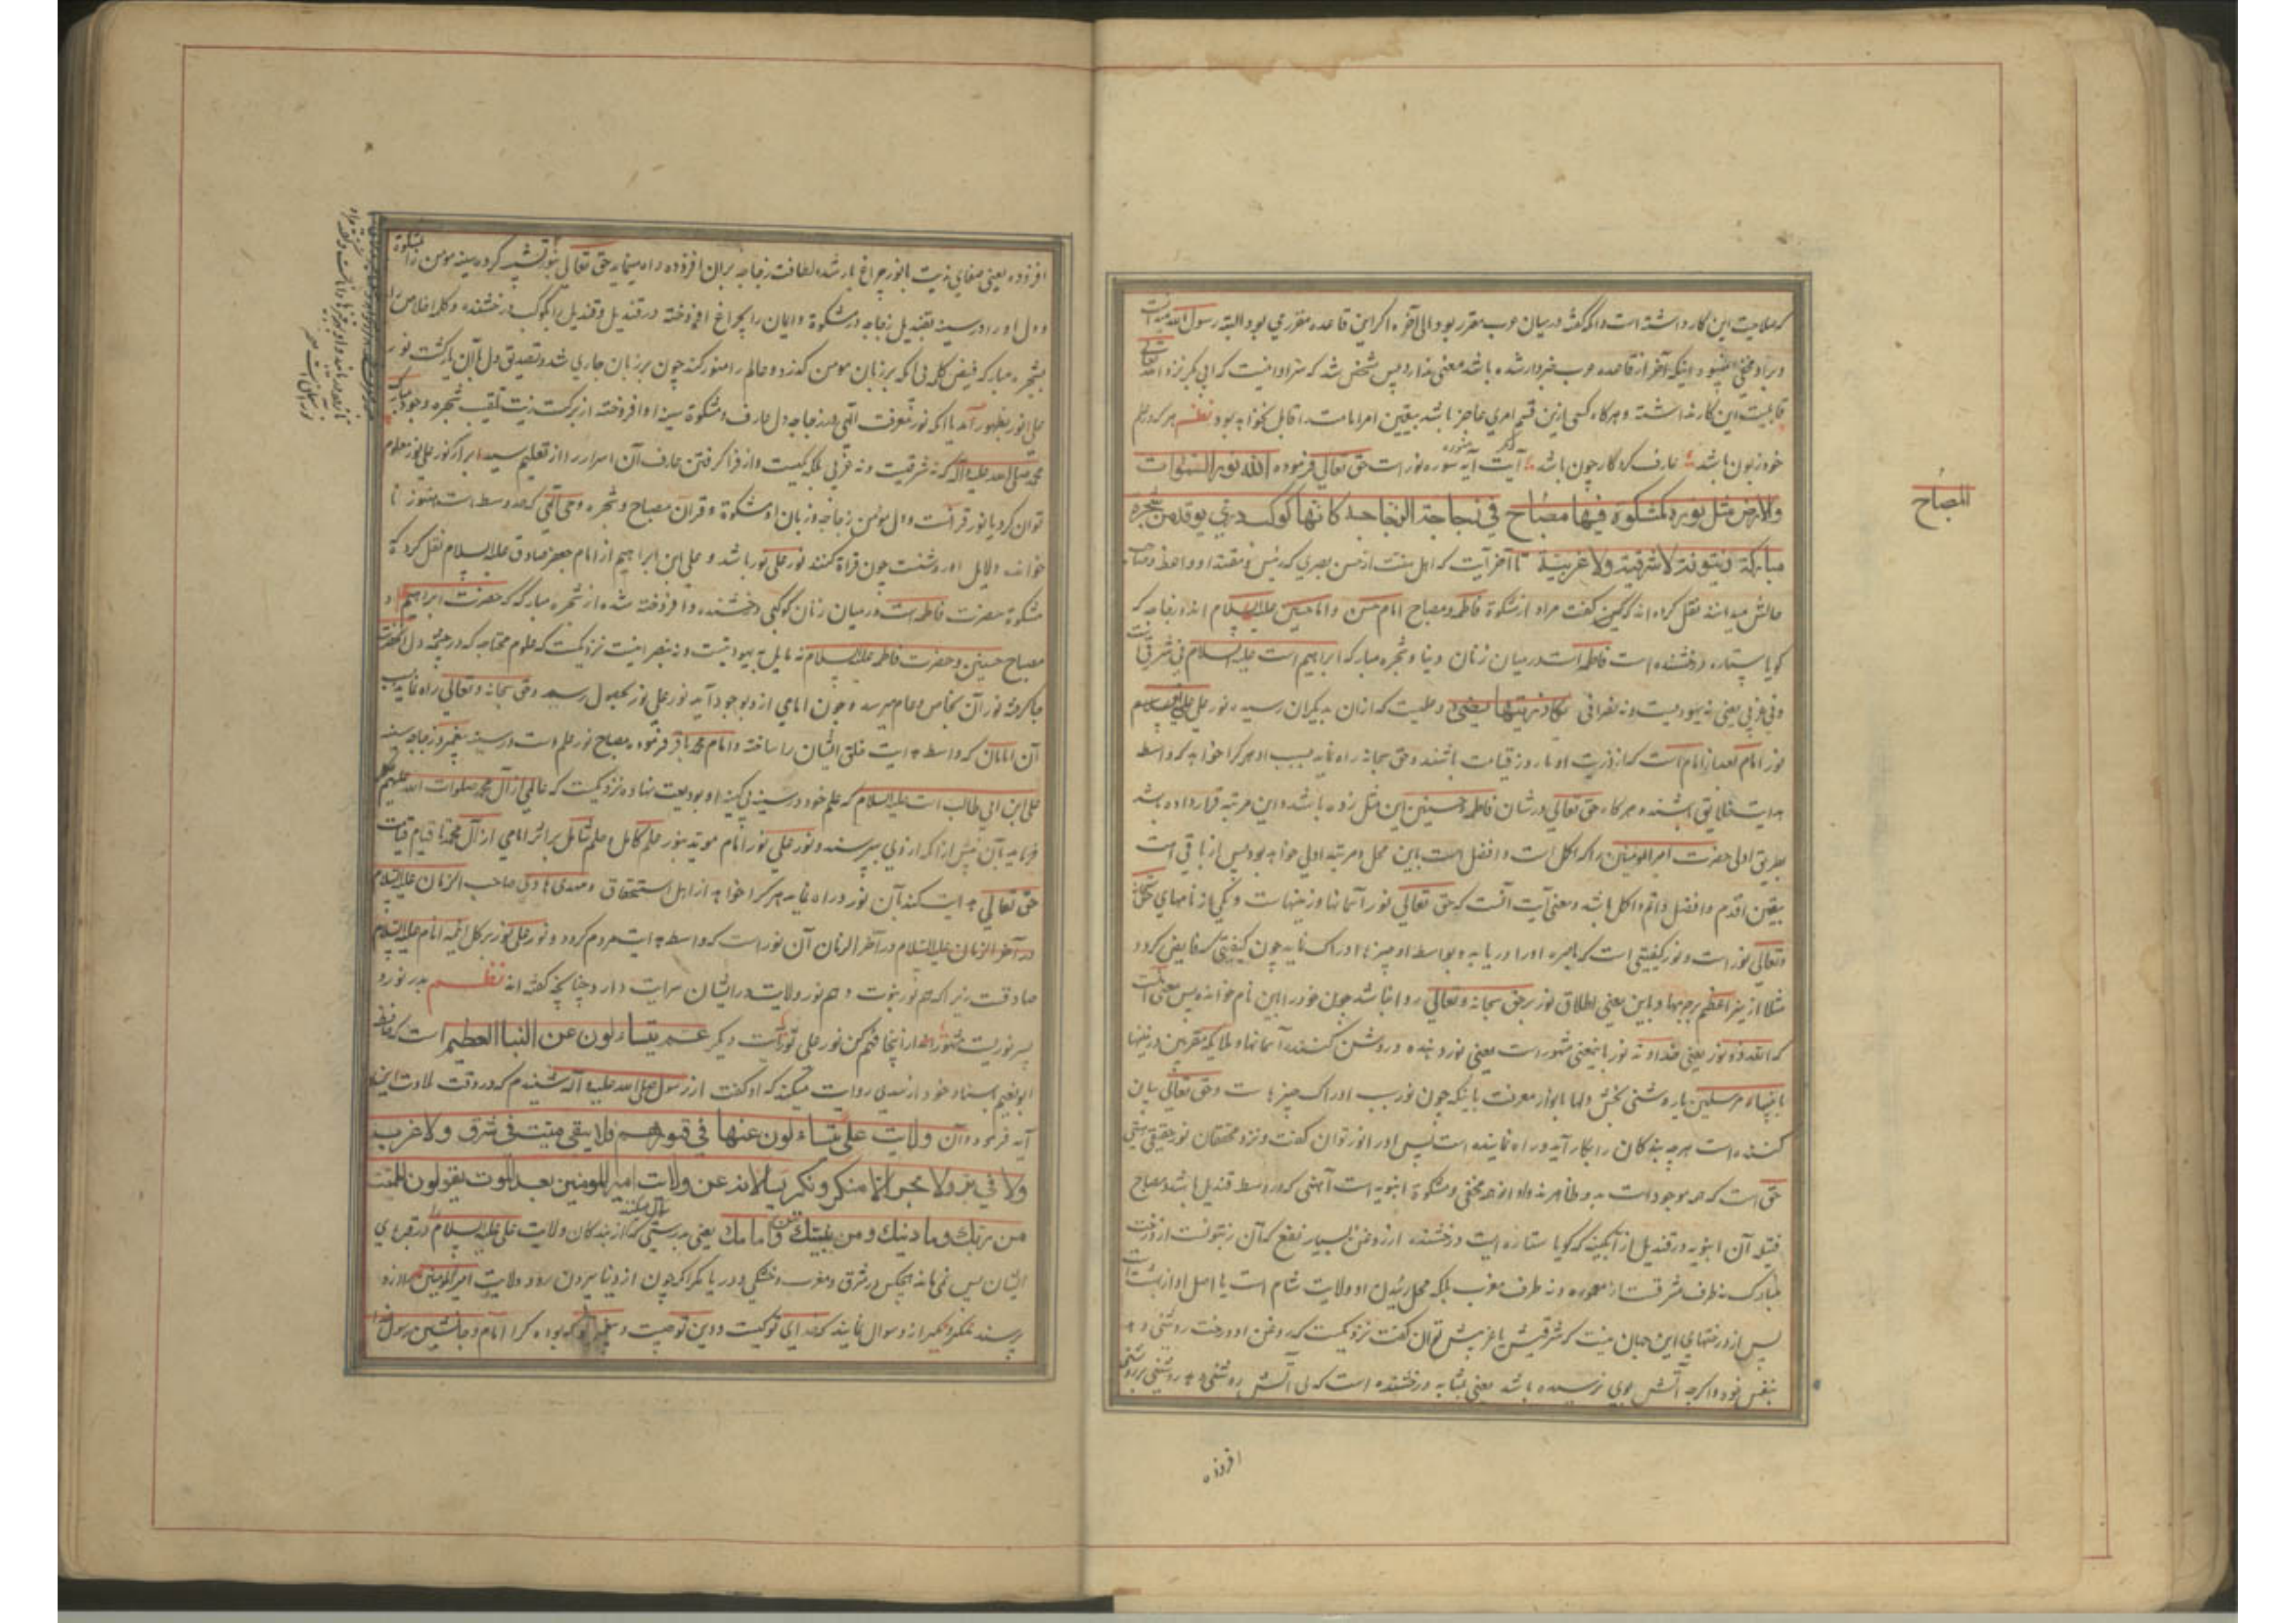 که صلاحیت این کار داشته است و آنکه گفته در میان عرب مقرر بود الی آخره اگر این قاعده مقرر می بود البته رسول الله
قابلیت این کار نداشته و هرکاه کسی ازین قسم امری عاجز باشد بیقین امر امامت را قابل نخواهد بود نظم هر که در علم
خود زبون باشد عارف کردکار چون باشد آیت دیگر آیه سوره نور است حق تعالی فرموده الله نور السموات
والارض مثل نوره کمشکوة فیها مصباح فی زجاجة الزجاجة کانها کوکب دری یوقد من شجرة
المصباح
مبارکة زیتونة لا شرقیة ولا غربیة تا آخر آیت که اهل سنت از حسن بصری که رئیس و مقتدا و واعظ و صاحب
حالش میدانند نقل کرده اند که گفت مراد از مشکوة فاطمه و مصباح امام حسن و امام حسین علیه السلام اند و زجاجه که
کویا ستاره درخشنده است فاطمه است در میان زنان دنیا و شجره مبارکه ابراهیم است علیه السلام نی شرقی است
ونی غربی یعنی نه یهودیست و نه نصرانی یکاد زیتها یضیء و علمیست که ازان بدیکران رسیده نور علی نور
نور امام بعد از امام است که از ذریت او تا روز قیامت باشند و حق سبحانه راه نماید بسبب او هر کرا خواهد که واسطه
هدایت خلایق باشند و هرکاه حق تعالی در شان فاطمه و حسنین این مثل زده باشد و این مرتبه قرار داده باشد
بطریق اولی حضرت امیر المومنین را که اکمل است و افضل است باین محل و مرتبه اولی خواهد بود پس از باقی است
بیقین اقدم و افضل و اتم و اکمل باشد و معنی آیت آنست که حق تعالی نور آسمانها و زمینهاست و یکی از نامهای حق سبحانه
وتعالی نور است و نور کیفیتی است که باصره اورا دریابد و بواسطه او چیزها ادراک نماید چون کیفیتی که فایض کردد
مثلا از نیر اعظم بر جرمها و باین معنی اطلاق نور بر حق سبحانه و تعالی روا نباشد چون خود را باین نام خوانده پس معنی آنست
که الله ذو نور یعنی خداوند نور باینمعنی مشهور است یعنی نور دهنده و روشن کننده آسمانها و ملایکه مقربین و زمینها
بانبیاء و مرسلین یا روشنی بخش دلها بانوار معرفت یا اینکه چون نور سبب ادراک چیزهاست و حق تعالی بیان
کننده است هرچه بندکان را بکار آید و راه نماینده است پس اورا نور توان کفت و نزد محققان نور حقیقی هستی
حق است که همه موجودات بدو ظاهرند و او از همه مخفی و مشکوة انبوبه است آهنی که در وسط قندیل باشد و مصباح
فتیله آن انبوبه و قندیل از آبکینه که کویا ستاره ایست درخشنده از روغن بسیار نفع که آن زیتونست از درخت
مبارک نه طرف مشرقست از معموره و نه طرف مغرب بلکه محل روئیدن او ولایت شام است یا اصل او از بهشت است
پس از درختهای این جهان نیست که شرقیش یا غربیش توان کفت نزدیکست که روغن او درخت روشنی دهد
بنفس خود و اکرچه آتش بوی نرسیده باشد یعنی بمثابه درخشنده است که بی آتش روشنی دهد روشنی بر روشنی
افروزد
افزوده یعنی صفای زیت با نور چراغ یار شده لطافت زجاجه بران افزوده و راه مینماید حق تعالی بنور تشبیه کرده سینه مومن را بمشکوة
و دل او را در سینه بقندیل زجاجه در مشکوة و ایمان را بچراغ افروخته در قندیل و قندیل را بکوکب درخشنده و کلمه اخلاص را
بشجره مبارکه
علی نور بظهور آمد یا آنکه نور معرفت الهی در زجاجه دل عارف و مشکوة سینه او افروخته از برکت زیت تلقیب شجره وجود مبارک
محمد صلی الله علیه و آله که نه شرقیست و نه غربی بلکه مکیست
توان کرد یا نور قرآنست و دل مومن زجاجه و زبان او مشکوة و قرآن مصباح و شجره وحی الهی
خوانده دلایل او روشنست چون قراة کنند نور علی نور باشد و علی ابن ابراهیم از امام جعفر صادق علیه السلام نقل کرد که
مشکوة حضرت فاطمه است در میان زنان کوکبی درخشنده و افروخته شده از شجره مبارکه که حضرت ابراهیم است و
مصباح حسنین و حضرت فاطمه علیه السلام نه مایل به یهودیتست و نه بنصرانیت نزدیکست که علوم
جا کرده نور آن بخاص و عام میرسد و چون امامی ازو بوجود آید نور علی نور بحصول رسد و حق سبحانه و تعالی راه نماید بسبب
آن امامان که واسطه هدایت خلق ایشان را ساخته و امام محمد باقر فرموده مصباح نور علم است در سینه پیغمبر و زجاجه سینه
علی ابن ابی طالب است علیه السلام که علم خود در سینه بی کینه او بودیعت نهاده نزدیکست که عالمی از آل محمد صلوات الله علیهم
فرماید بآن پیش از آنکه از وی بپرسند و نور علی نور امام موید بنور علم کامل و علم شامل بر اثر امامی از آل محمد تا قیام قیامت
حق تعالی هدایت کند بآن نور و راه نماید هر کرا خواهد از اهل استحقاق و مهدی هادی صاحب الزمان علیه السلام
در آخر الزمان علیه السلام در آخر الزمان آن نور است که واسطه هدایت مردم کردد و نور علی نور بر کل ائمه انام علیه السلام
صادقست زیرا که هم نور نبوت و هم نور ولایت در ایشان سرایت دارد چنانچه کفته اند نظم پدر نور و
پسر نوریست مشهور ازاینجا فهم کن نور علی نور آیت دیکر عم یتساءلون عن النبا العظیم است که حافظ
ابونعیم باسناد خود از سدی روایت میکند که او کفت از رسول صلی الله علیه و آله شنیدم که در وقت تلاوت این
آیه فرمود و آن ولایت علی یتساءلون عنها فی قبورهم فلا یبقی میت فی شرق ولا غرب
ولا فی بر ولا بحر الا منکر و نکیر یسالانه عن ولایت امیر المومنین بعد الموت یقولون للمیت
من ربک وما دینک ومن نبیک ومن امامک یعنی بدرستی که از بندکان ولایت علی علیه السلام در قبرهای
سوال میکنند
ایشان پس نمی ماند هیچکس در شرق و مغرب و خشکی و دریا مکر آنکه چون از دنیا بیرون رود ولایت امیر المومنین را ازو
پرسند منکر و نکیر ازو سوال نمایند که خدای تو کیست و دین تو چیست و پیغمبر تو که بوده کرا امام و جانشین رسول خدا